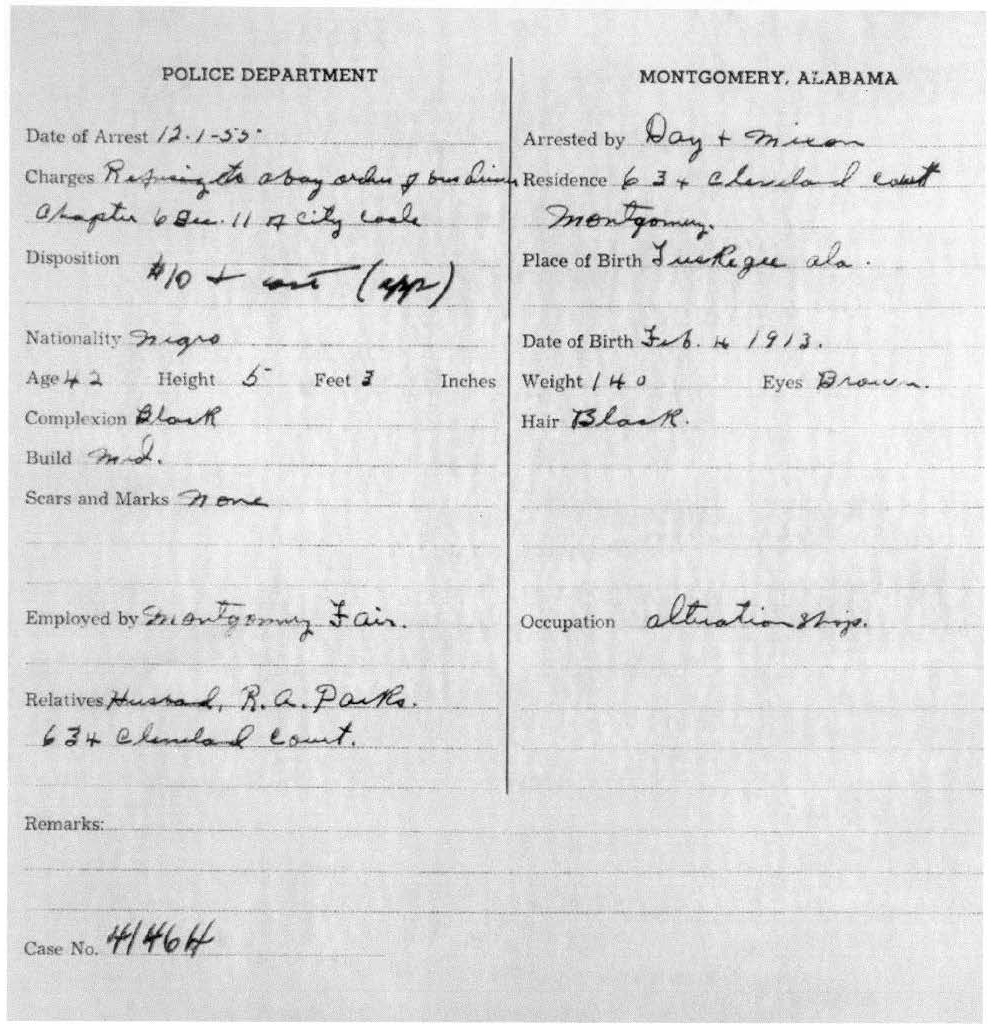 POLICE DEPARTMENT
MONTGOMERY, ALABAMA
Date of Arrest 12-1-55
Arrested by Day + Mixon
Charges Refusing to obay orders of bus driver
Chapter 6 Sec. 11 of city code
Residence 634 Cleveland Court
Montgomery.
Disposition $10 + cost (app)
Place of Birth Tuskegee Ala.
Nationality Negro
Date of Birth Feb. 4 1913.
Age 42 Height 5 Feet 3 Inches
Weight 140 Eyes Brown.
Complexion Black
Hair Black.
Build Med.
Scars and Marks None
Employed by Montgomery Fair.
Occupation alteration shop.
Relatives Husband, R.A. Parks.
634 Cleveland Court.
Remarks:
Case No. 41464